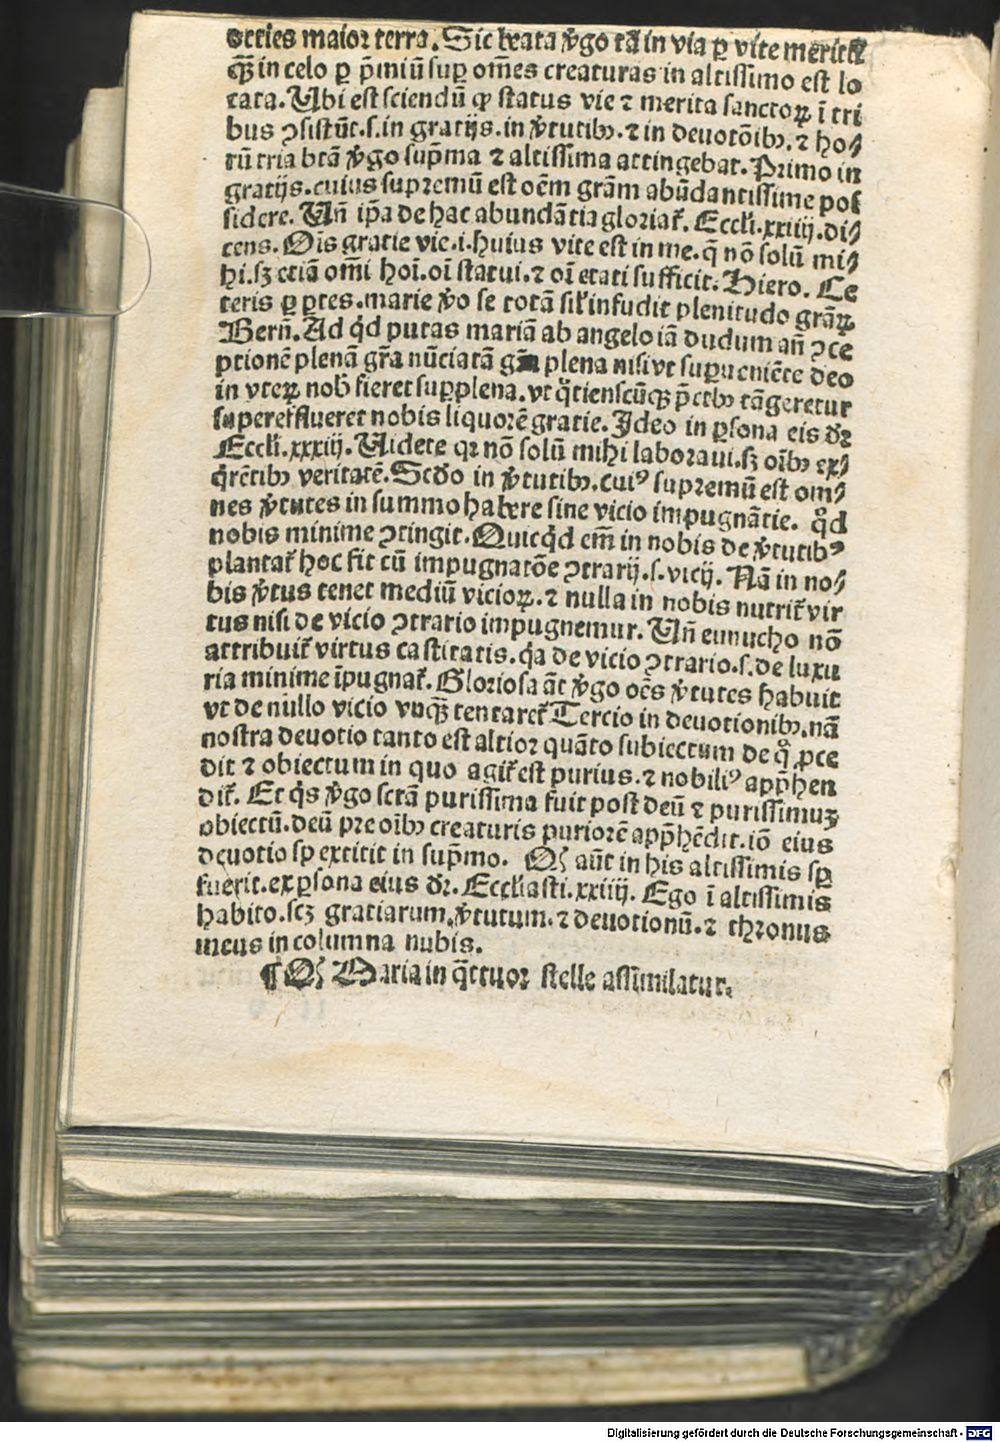 octies maior terra. Sic beata v̾go tā in via ꝑ vite meritū
qꝫ̄ in celo ꝑ p̄miū suꝑ om̄es creaturas in altissimo est lo
cata. Ubi est sciendū ꝙ status vie ⁊ merita sanctoꝝ ī tri
bus ꝯsistūt.s.in gratijs.in v̾tutibꝰ.⁊ in deuotōibꝰ.⁊ ho⸗
rū tria btā v̾go sup̄ma ⁊ altissima attingebat. Primo in
gratijs.cuius supremū est oēm grām abūdantissime pos
sidere. Uñ ip̄a de hac abundātia gloriat᷑. Eccli.xxiiij.di⸗
cens. Ois gratie vie.i.huius vite est in me.q̄ nō solū mi⸗
hi.sꝫ etiā om̄i hoī.oī statui.⁊ oī etati sufficit. Hiero. Ce
teris ꝑ ꝑtes.marie v̾o se totā sil᷑ infudit plenitudo grāꝝ.
Berñ. Ad qͥd putas mariā ab angelo iā dudum añ ꝯce
ptionē plenā gr̄a nūciatā plena nisi vt suꝑueniēte deo
in vteꝝ nob̾ fieret suꝑplena.vt q̊tienscūqꝫ p̄ctbꝰ tāgeretur
superefflueret nobis liquorē gratie. Ideo in ꝑsona eis dr̄
Eccli.xxxiij. Uidete qꝛ nō solū mihi laboraui.sꝫ oībꝰ ex⸗
q̊rētibꝰ veritatē. Scd̾o in v̾tutibꝰ.cuiꝰ supremū est om⸗
nes v̾tutes in summo habere sine vicio impugnātie. qͦd
nobis minime ꝯtingit. Quicqͥd em̄ in nobis de v̾tutibꝰ
plantat᷑ hoc fit cū impugnatōe ꝯtrarij.s.vicij. Nā in no⸗
bis v̾tus tenet mediū vicioꝝ.⁊ nulla in nobis nutrit᷑ vir
tus nisi de vicio ꝯtrario impugnemur. Uñ eunucho nō
attribuit᷑ virtus castitatis.qͥa de vicio ꝯtrario.s.de luxu
ria minime īpugnat᷑. Gloriosa āt v̾go oēs v̾tutes habuit
vt de nullo vicio vnqꝫ̄ tentaret᷑ Tercio in deuotionibꝰ.nā
nostra deuotio tanto est altior quāto subiectum de qͦ ꝓce
dit ⁊ obiectum in quo agit᷑ est purius.⁊ nobiliꝰ app̄hen
dit᷑. Et qͥs v̾go sctā purissima fuit post deū ⁊ purissimuꝫ
obiectū.deū pre oībꝰ creaturis puriorē app̄hēdit.iō eius
deuotio sꝑ extitit in sup̄mo. Qꝫ aūt in his altissimis sꝑ
fuerit.ex ꝑsona eius dr̄. Ecclīasti.xxiiij. Ego ī altissimis
habito.scꝫ gratiarum.v̾tutum.⁊ deuotionū.⁊ thronus
meus in columna nubis.
¶ Qꝫ Maria in q̄ttuor stelle assimilatur.
Digitalisierung gefördert durch die Deutsche Forschungsgemeinschaft - DFG